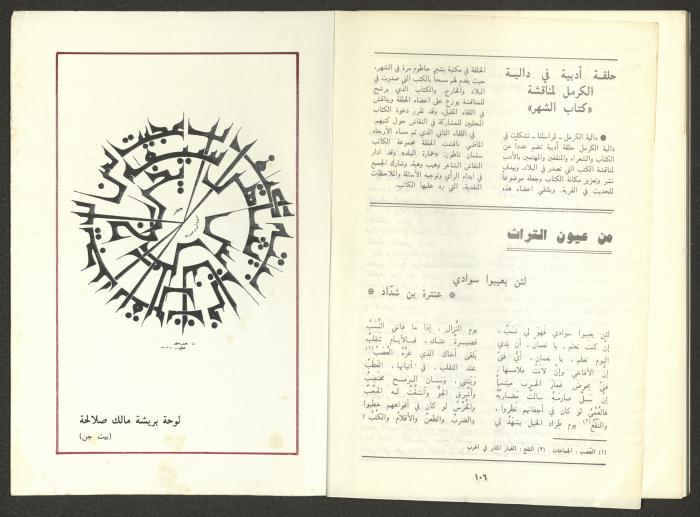 حلقة أدبية في دالية
الكرمل لمناقشة
«كتاب الشهر»
● دالية الكرمل ـ لمراسلنا ـ تشكلت في
دالية الكرمل حلقة أدبية تضم عدداً من
الكتاب والشعراء والمثقفين والمهتمين بالأدب
لمناقشة الكتب التي تصدر في البلاد، وبهدف
نشر وتعزيز مكانة الكتاب وجعله موضوعاً
للحديث في القرية. ويلتقي اعضاء هذه
الحلقة في مكتبة بشير حاطوم مرة في الشهر،
حيث يقدم لهم مسحاً بالكتب التي صدرت في
البلاد والخارج. والكتاب الذي يرشح
للمناقشة يوزع على اعضاء الحلقة ويناقش
في اللقاء المقبل. وقد تقرر دعوة الكتاب
المحليين للمشاركة في النقاش حول كتبهم.
في اللقاء الثاني الذي تم مساء الأربعاء
الماضي ناقشت الحلقة مجموعة الكاتب
سلمان ناطور، «خمارة البلد» وقد ادار
النقاش الشاعر وهيب وهبة، وشارك الجميع
في ابداء الرأي وتوجيه الأسئلة والملاحظات
النقدية، التي رد عليها الكاتب.
من عيون التراث
لئن يعيبوا سوادي
* عنترة بن شداد *
لئن يعيبوا سوادي فهو لي نسب، يوم النزال، إذا ما فاتني النسب
إن كنت تعلم، يا نعمان، أن يدي قصيرة عنك، فالأيام تنقلب
اليوم تعلم، يا نعمان، أي فتى يلقى أخاك الذي غره العصب (١)
إن الأفاعي وإن لانت ملامسها، عند التقلب، في أنيابها، العطب
فتى يخوض غمار الحرب مبتسماً وينثني، وسنان الرمح مختضب
إن سل صارمه سالت مضاربه وأشرق الجو وانشقت له الحجب
فالعمي لو كان في أجفانهم نظروا، والخرس لو كان في أفواههم خطبوا
والنقع (٢) يوم طراد الخيل يشهد لي والضرب والطعن والأقلام والكتب!
(١) العصب : الجماعات. (٢) النقع : الغبار المثار في الحرب.
١٠٦
لوحة بريشة مالك صلالحة
(بيت جن)